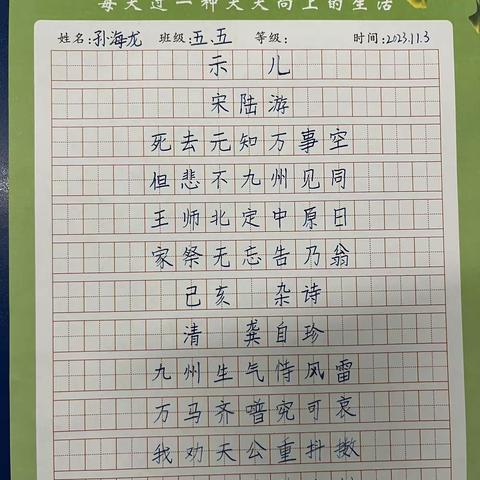 每天过一种天天向上的生活
姓名:孙海龙 班级:五.五 等级: 时间:2023.11.3
示 儿
宋陆游
死去元知万事空
但悲不九州见同
王师北定中原日
家祭无忘告乃翁
己亥 杂诗
清 龚自珍
九州生气恃风雷
万马齐喑究可哀
我劝天公重抖擞